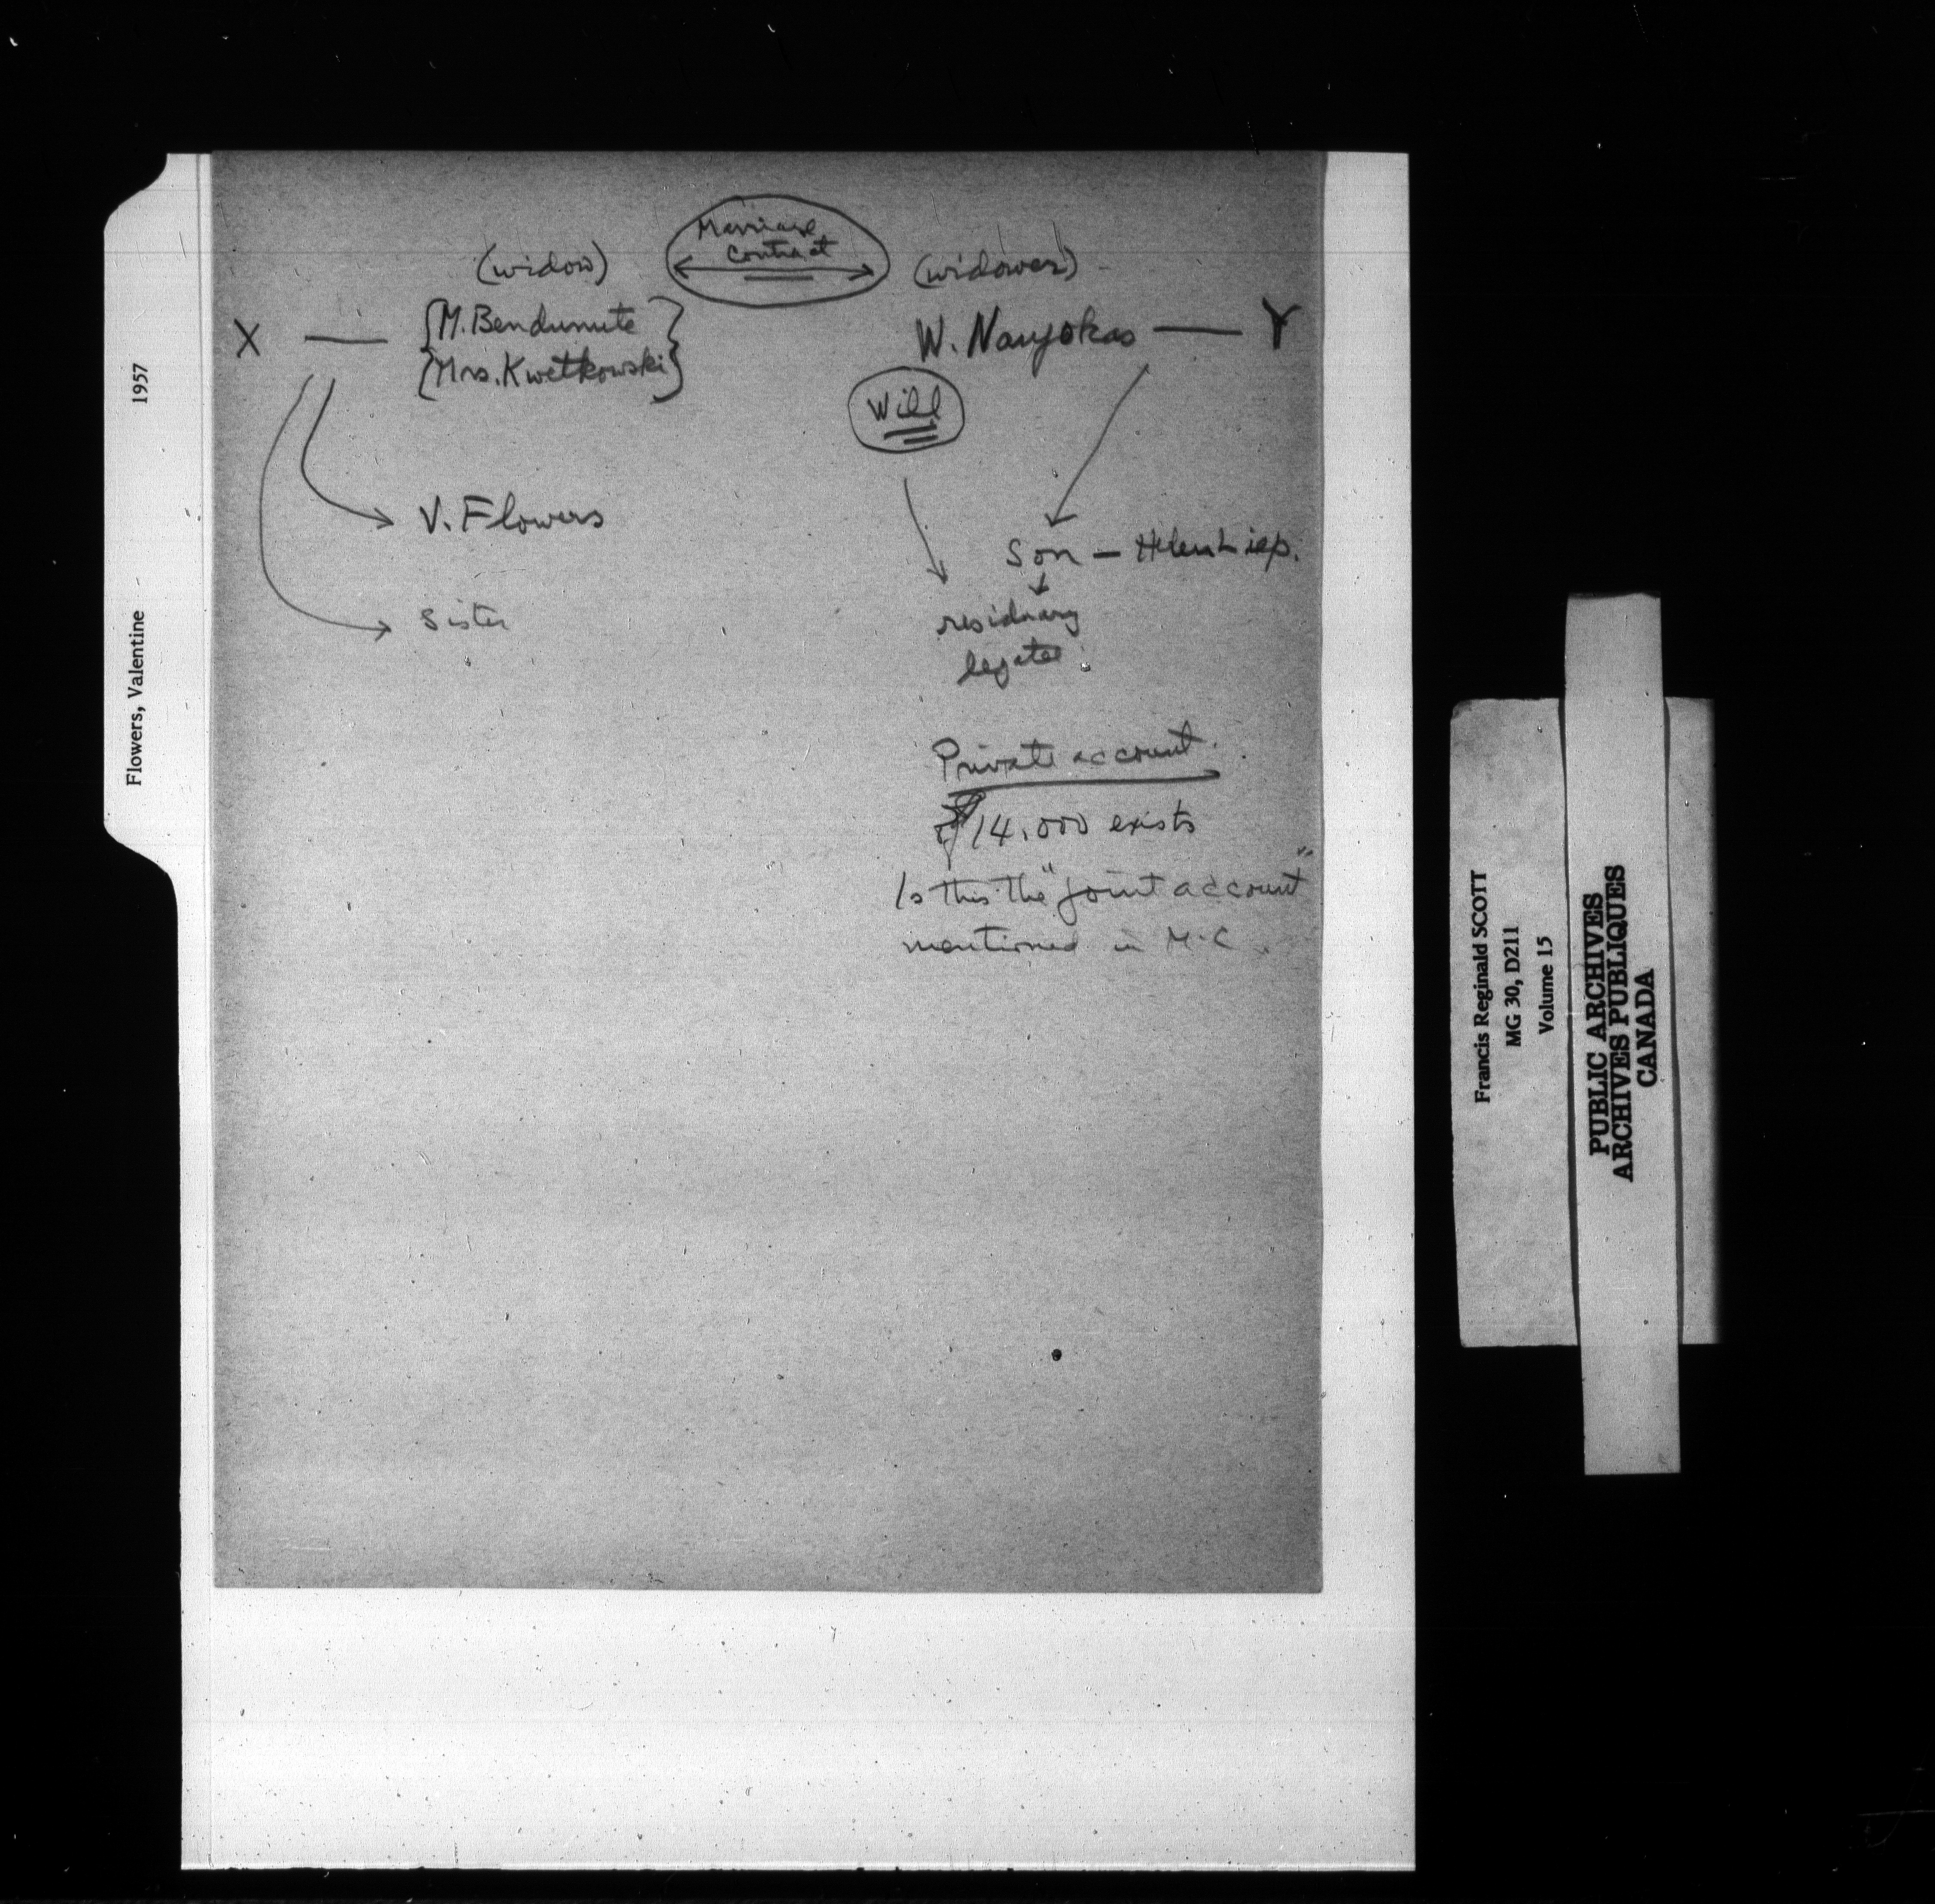 Marriage
Contract
(widow)
(widower)
X — M. Bendunute
Mrs. Kwetkowski
W. Nanyokas — Y
Will
V. Flowers
Son — Helen
Sister
residuary
legatee
Private account.
$14,000 exists
Is this the "joint account"
mentioned in M.C.
Flowers, Valentine 1957
Francis Reginald SCOTT
MG 30, D211
Volume 15
PUBLIC ARCHIVES
ARCHIVES PUBLIQUES
CANADA